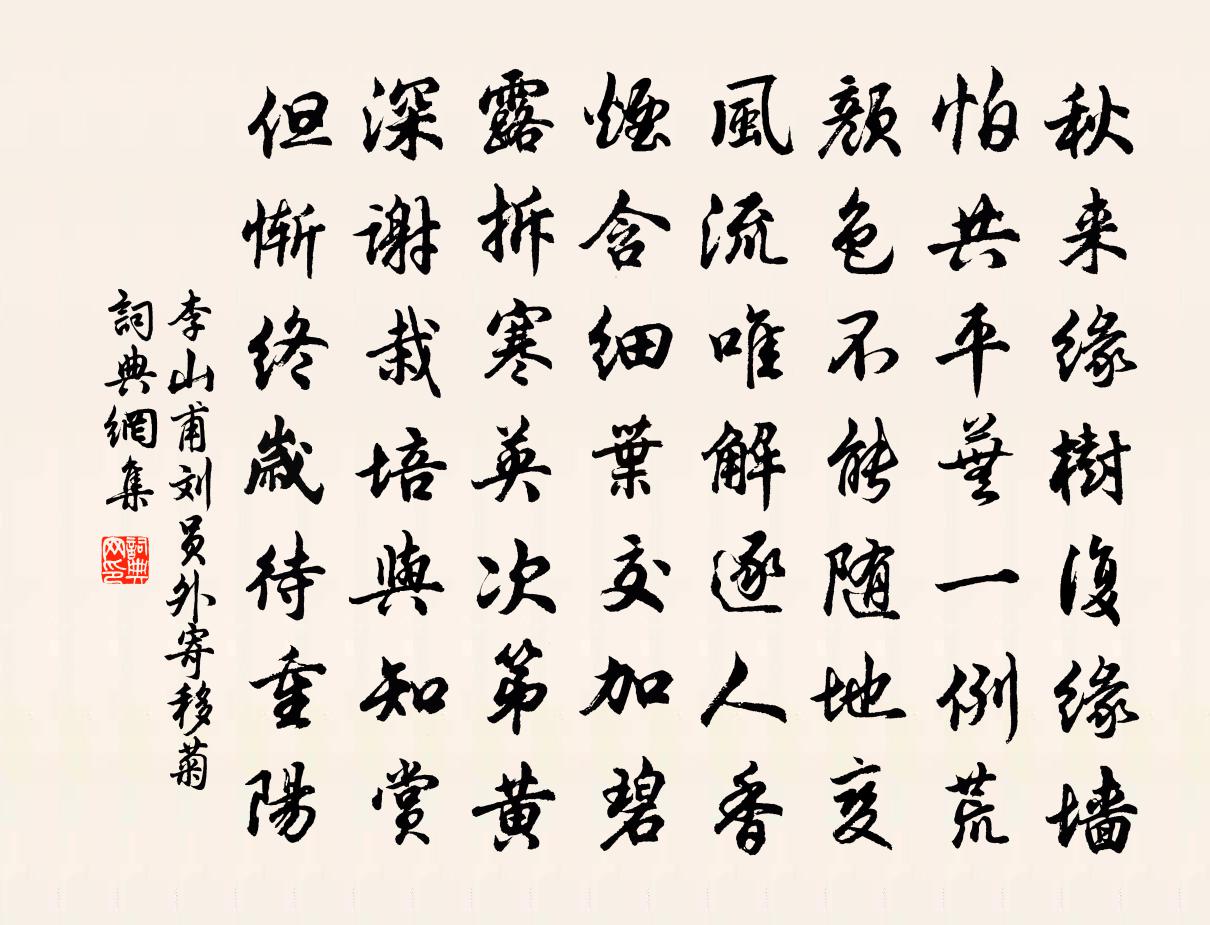 秋来缘樹復缘墙
怕共平蕪一例荒
颜色不能随地变
風流唯解逐人香
煙含细葉交加碧
露拆寒英次第黄
深謝栽培與知赏
但惭终歳待重陽
李山甫刘员外寄移菊
詞典網集
詞典网印